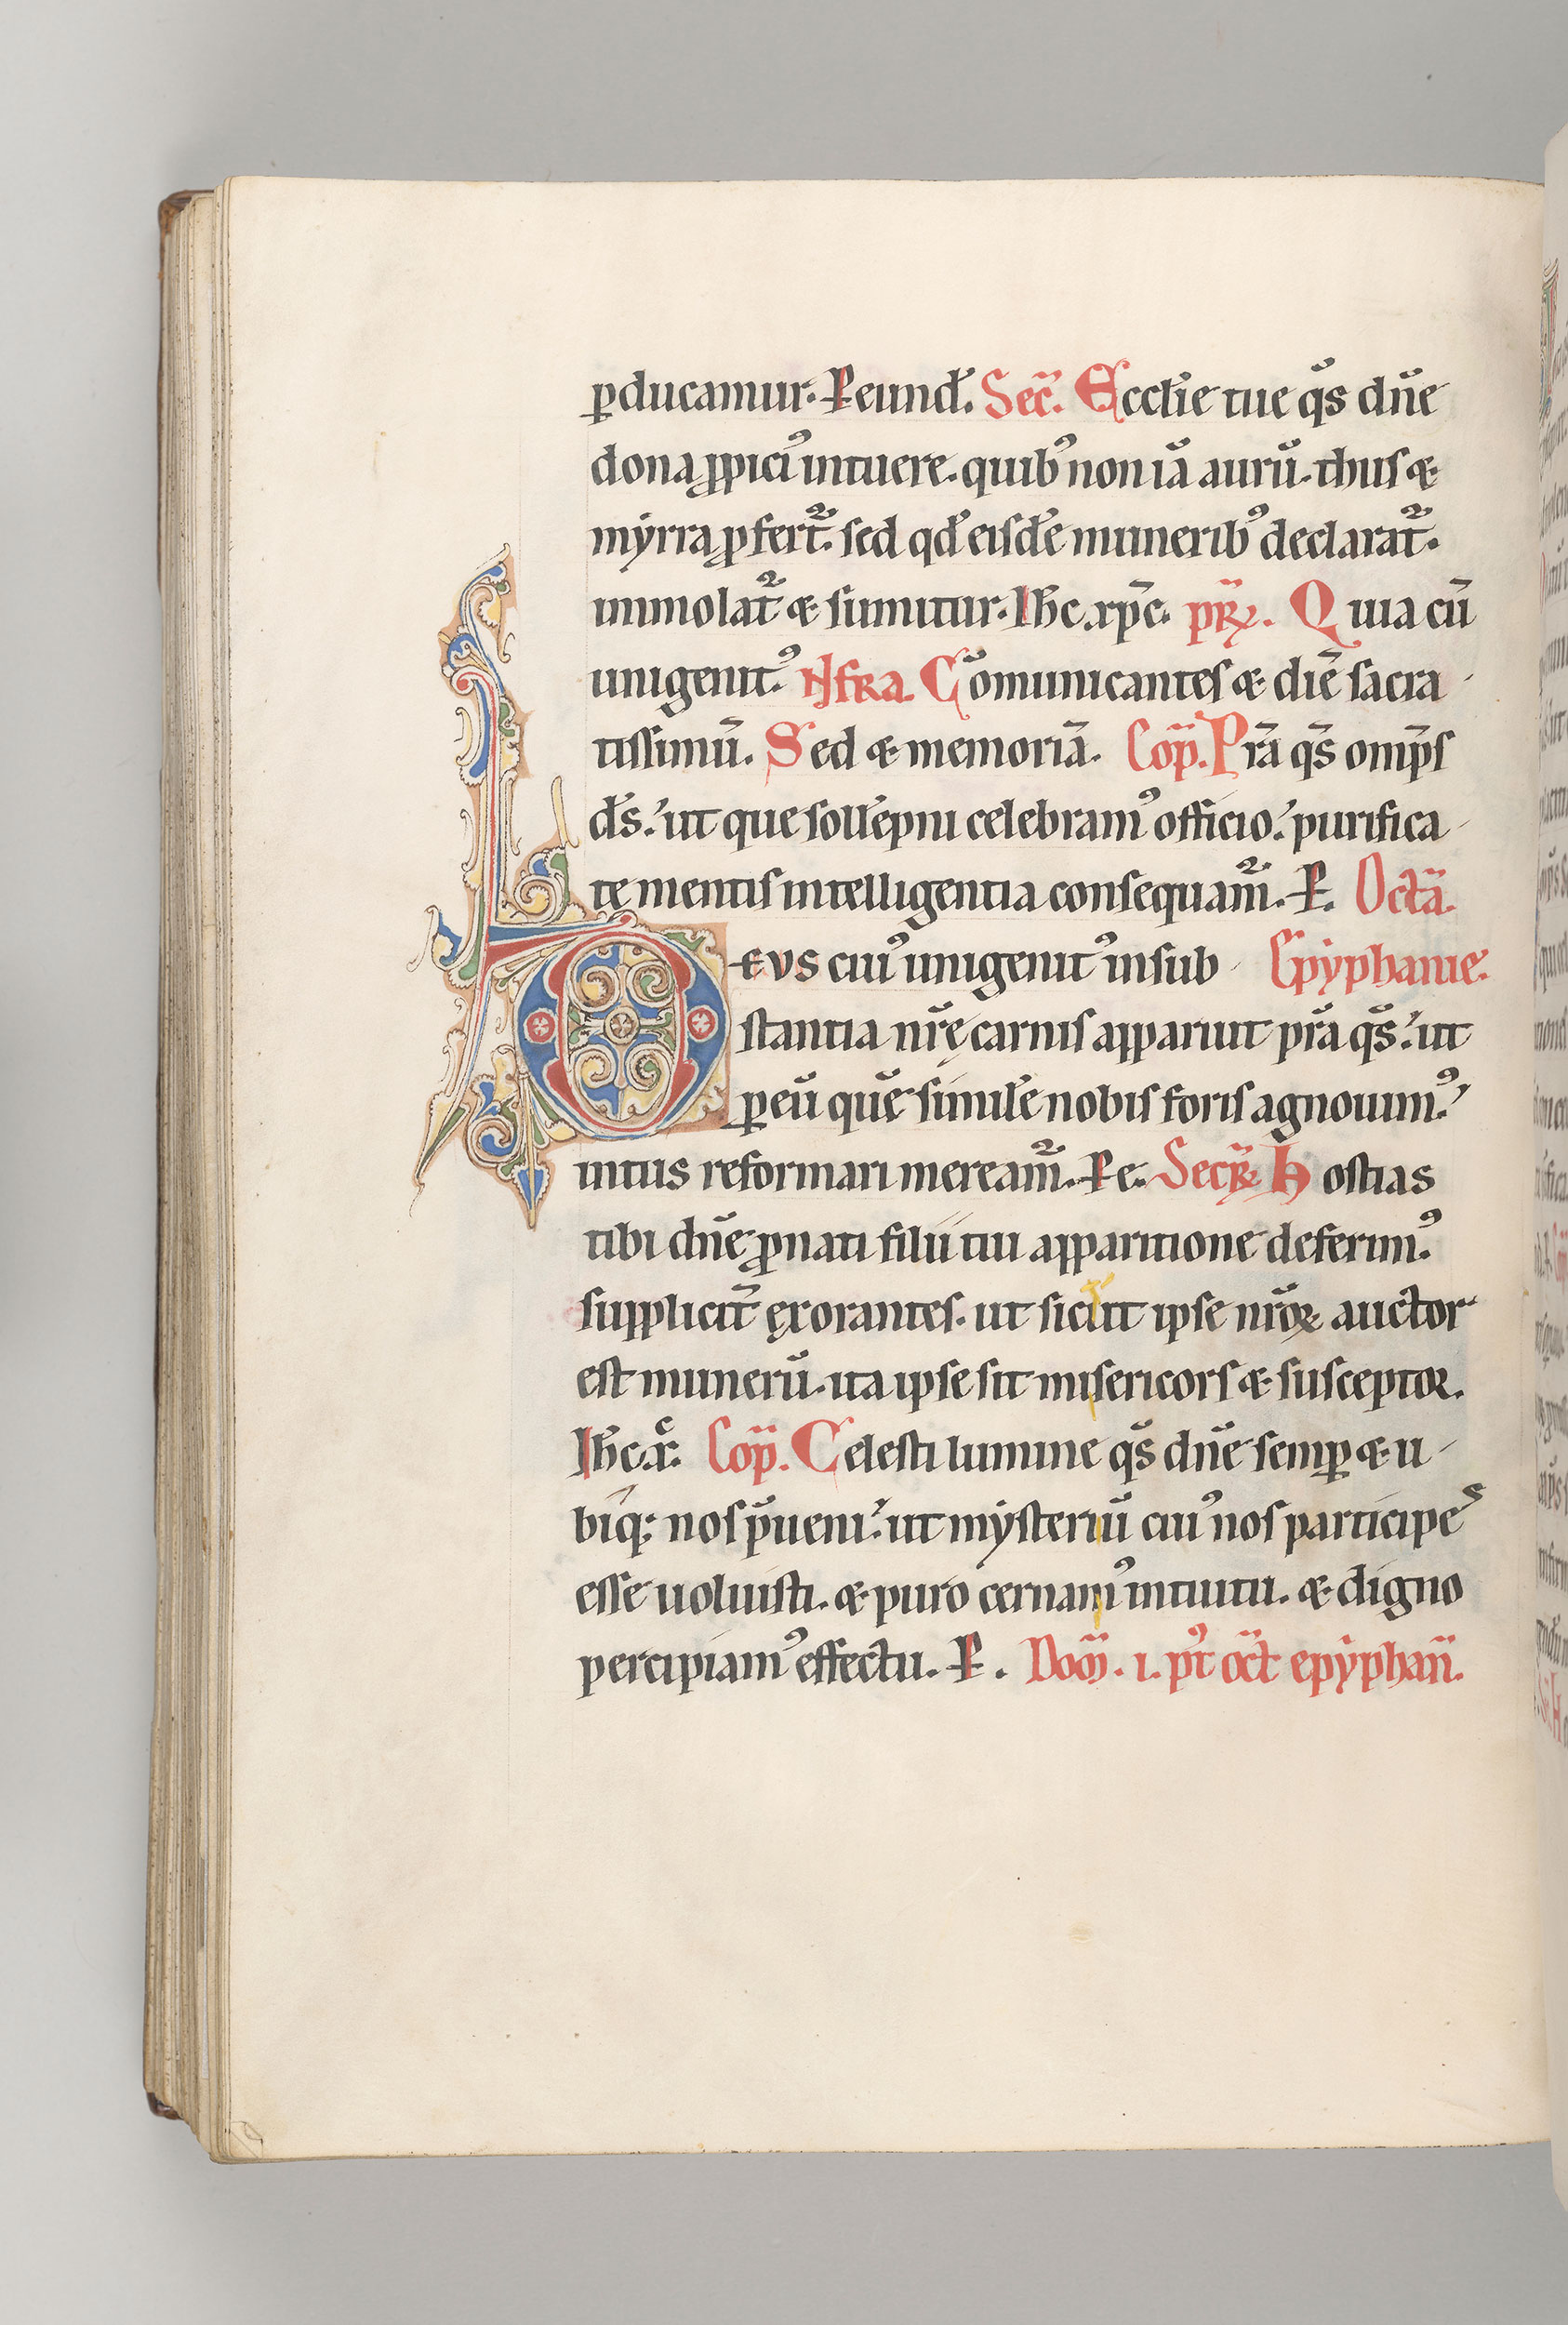 ꝑducamur. Peund̃. Sec̃. Eccl̃ie tue q̃s dñe
dona ꝓpiciꝰ intuere. quibꝰ non iã aurũ. thus &
mẏrra ꝓfert᷑. sed qd̃ eisdẽ muneribꝰ declarat᷑.
immolat᷑ & sumitur. Ih̃c xp̃c. p̃R̃. Quia cũ
unigenitꝰ. Nfra. Cõmunicantes & diẽ sacra
tissimũ. Sed & memoriã. Cõp̃. Prã q̃s omp̃s
d̃s. ut que sollẽpni celebramꝰ officio. purifica
te mentis intelligentia consequam᷑. P. Octã.
DEVS cuiꝰ unigenitꝰ in sub Epẏphanie.
stantia nr̃ę carnis apparuit pr̃a q̃s. ut
ꝑ eũ quẽ similẽ nobis foris agnouimꝰ.
intus reformari meream᷑. Pe. Secr̃. Hostias
tibi dñe ꝓ nati filii tui apparitione deferimꝰ.
supplicit̃ ęxorantes. ut sicut ipse nr̃oꝝ auctor
est munerũ. ita ipse sit misericors & susceptor.
Ih̃c x̃. Cõp̃. Celesti lumine q̃s dñe semꝑ & u
biq; nos p̃ueni. ut mẏsteriũ cuiꝰ nos participes
esse uoluisti. & puro cernamꝰ intuitu. & digno
percipiamꝰ effectu. P. Dom̃. i. pꝰt oct̃ epẏphañ.